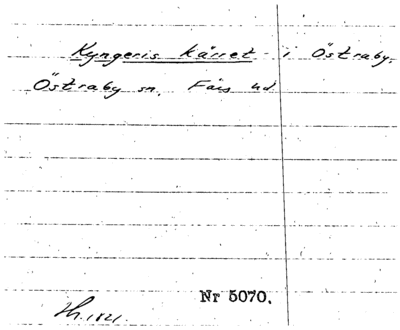 Kyngeris kärret i Östraby,
Östraby sn. Färs hd.
Nr 5070.